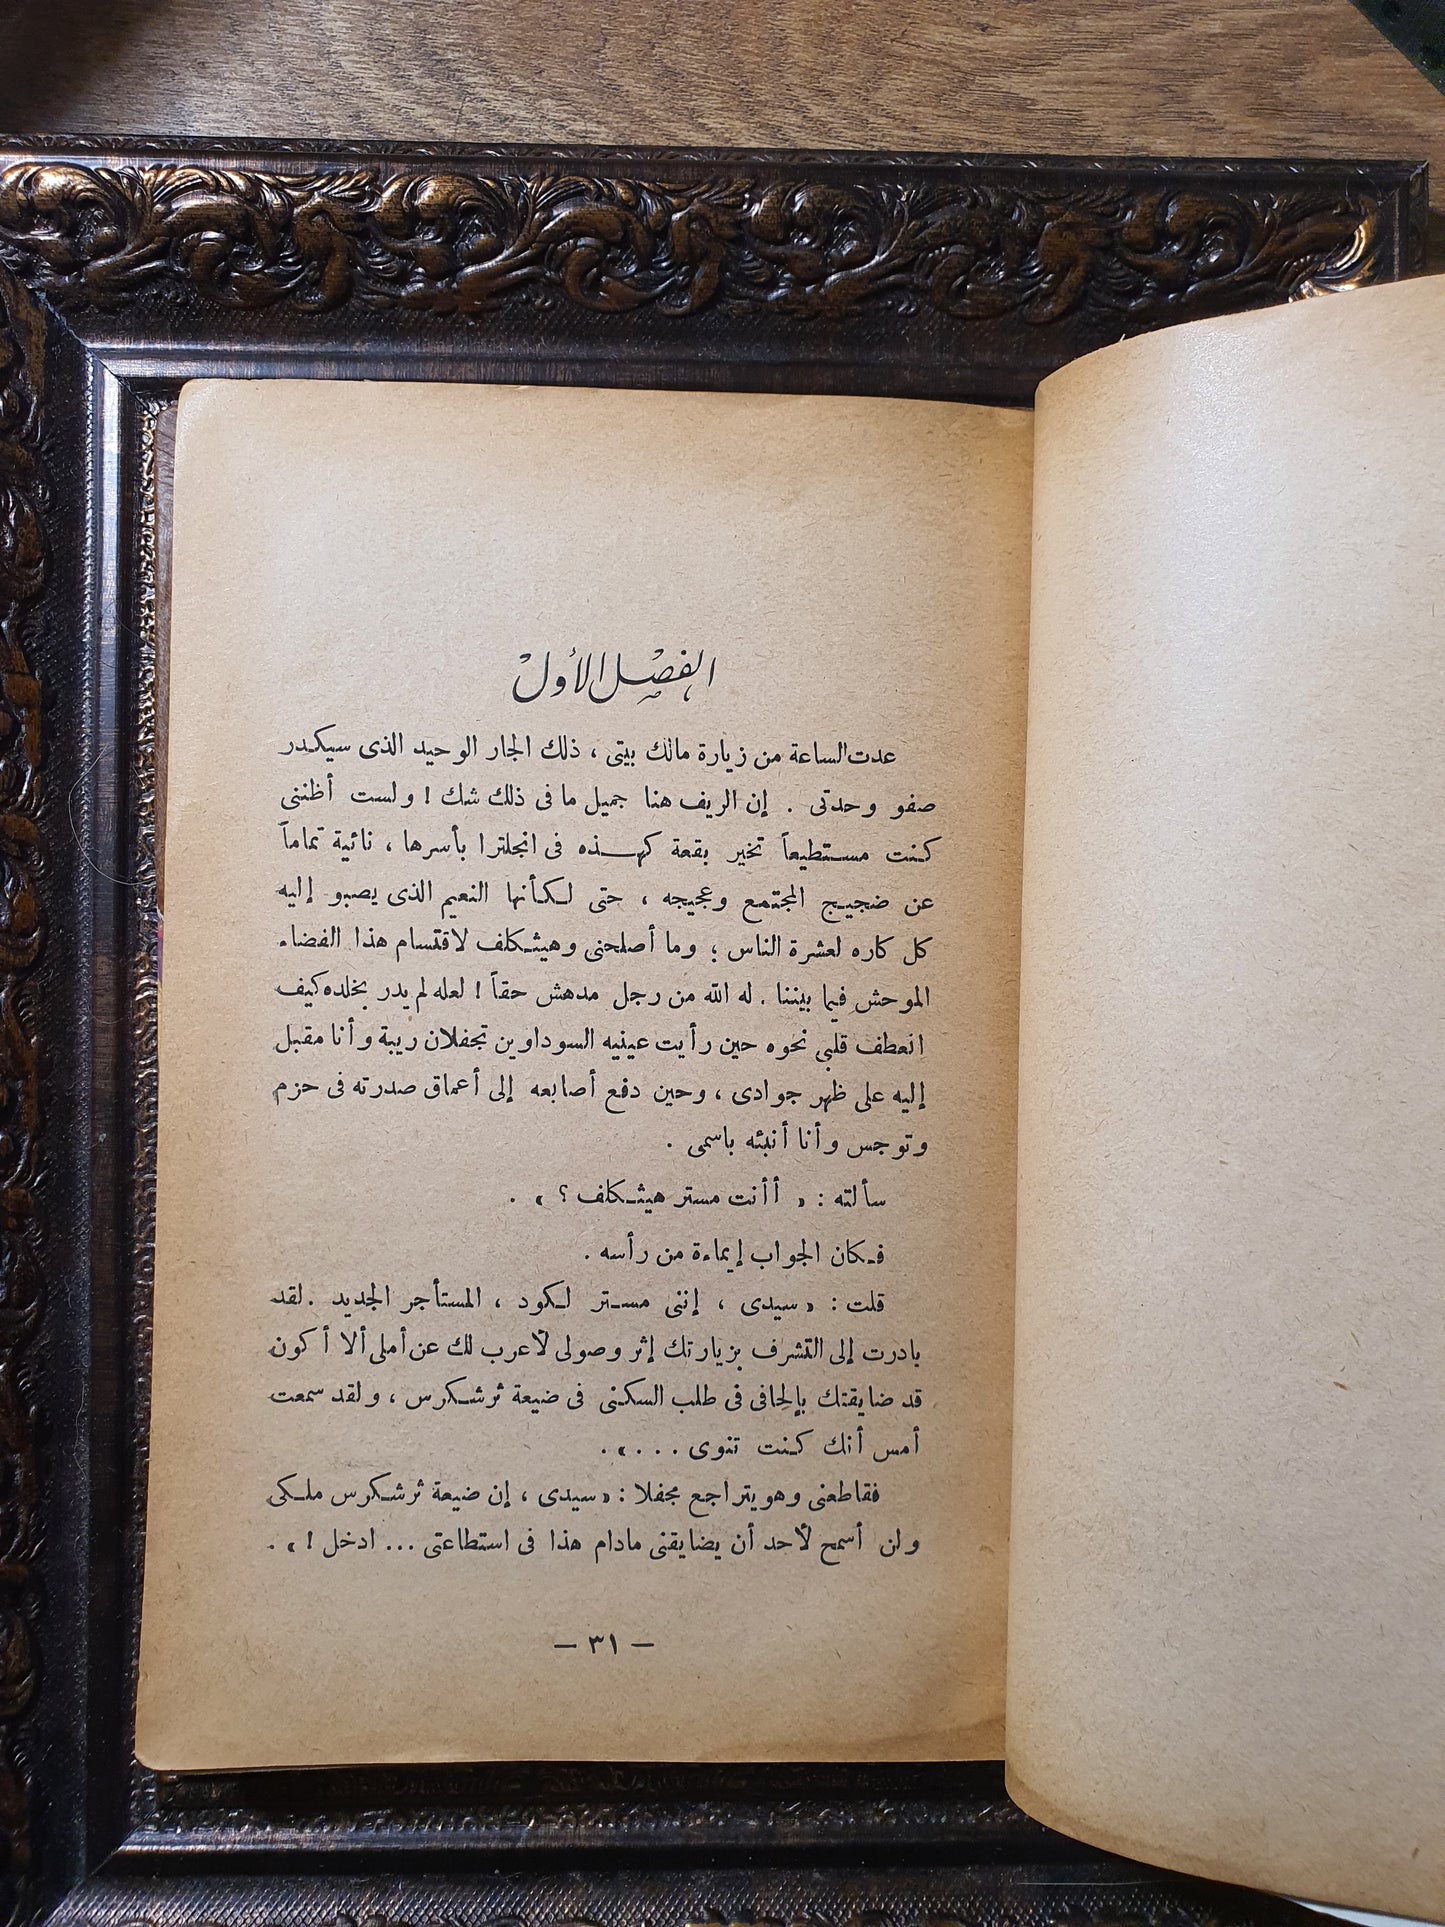 الفصل الأول
عدت الساعة من زيارة مالك بيتى ، ذلك الجار الوحيد الذى سيكدر
صفو وحدتى . إن الريف هنا جميل ما فى ذلك شك ! ولست أظننى
كنت مستطيعاً تخير بقعة كهذه فى انجلترا بأسرها ، نائية تماماً
عن ضجيج المجتمع وعجيجه ، حتى لكأنها النعيم الذى يصبو إليه
كل كاره لعشرة الناس ؛ وما أصلحنى وهيثكلف لاقتسام هذا الفضاء
الموحش فيما بيننا . له الله من رجل مدهش حقاً ! لعله لم يدر بخلده كيف
انعطف قلبى نحوه حين رأيت عينيه السوداوين تجفلان ريبة وأنا مقبل
إليه على ظهر جوادى ، وحين دفع أصابعه إلى أعماق صدرته فى حزم
وتوجس وأنا أنبئه باسمى .
سألته : « أأنت مستر هيثكلف ؟ » .
فكان الجواب إيماءة من رأسه .
قلت : « سيدى ، إننى مستر لكود ، المستأجر الجديد . لقد
بادرت إلى التشرف بزيارتك إثر وصولى لأعرب لك عن أملى ألا أكون
قد ضايقتك بإلحافى فى طلب السكنى فى ضيعة ثرشكرس ، ولقد سمعت
أمس أنك كنت تنوى . . . » .
فقاطعنى وهو يتراجع مجفلا : « سيدى ، إن ضيعة ثرشكرس ملكى
ولن أسمح لأحد أن يضايقنى مادام هذا فى استطاعتى ... ادخل ! » .
— ٣١ —